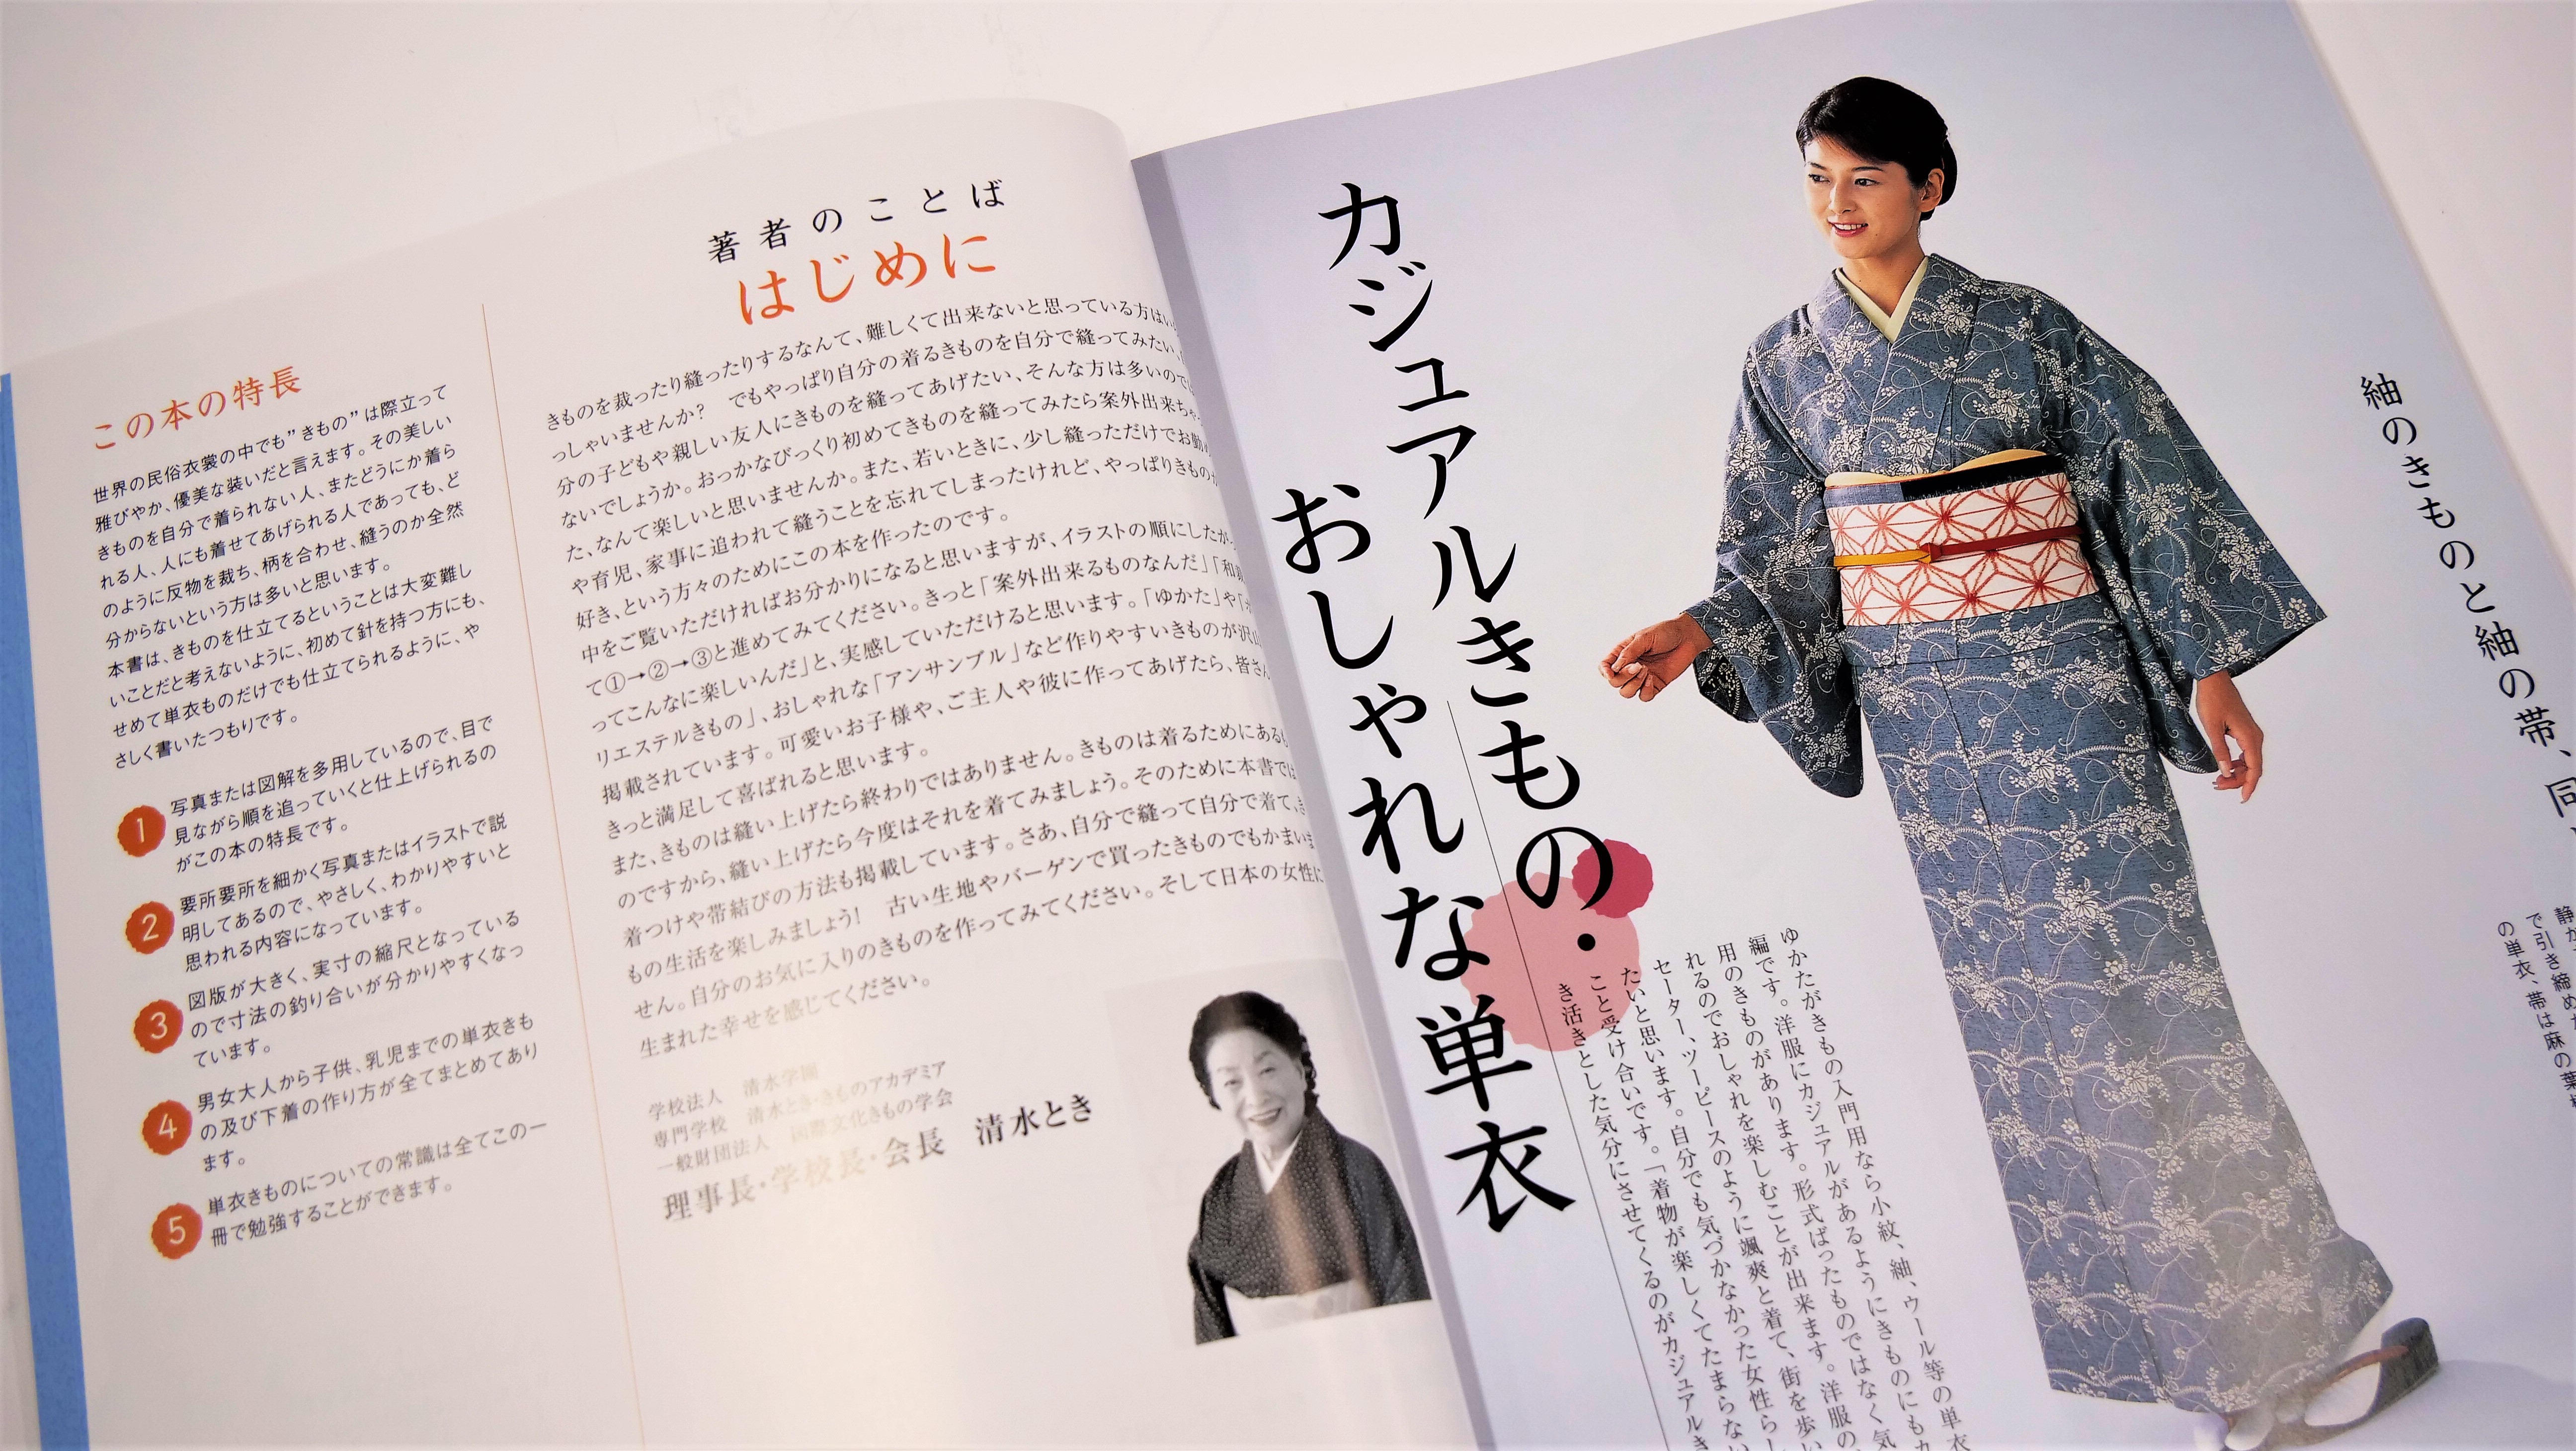 この本の特長
世界の民俗衣裳の中でも"きもの"は際立って
雅びやか、優美な装いだと言えます。その美しい
きものを自分で着られない人、またどうにか着ら
れる人、人にも着せてあげられる人であっても、ど
のように反物を裁ち、柄を合わせ、縫うのか全然
分からないという方は多いと思います。
本書は、きものを仕立てるということは大変難し
いことだと考えないように、初めて針を持つ方にも、
せめて単衣ものだけでも仕立てられるように、や
さしく書いたつもりです。
1 写真または図解を多用しているので、目で
見ながら順を追っていくと仕上げられるの
がこの本の特長です。
2 要所要所を細かく写真またはイラストで説
明してあるので、やさしく、わかりやすいと
思われる内容になっています。
3 図版が大きく、実寸の縮尺となっている
ので寸法の釣り合いが分かりやすくなっ
ています。
4 男女大人から子供、乳児までの単衣きも
の及び下着の作り方が全てまとめてあり
ます。
5 単衣きものについての常識は全てこの一
冊で勉強することができます。
著者のことば
はじめに
きものを裁ったり縫ったりするなんて、難しくて出来ないと思っている方は
っしゃいませんか? でもやっぱり自分の着るきものを自分で縫ってみたい、
分の子どもや親しい友人にきものを縫ってあげたい、そんな方は多いので
ないでしょうか。おっかなびっくり初めてきものを縫ってみたら案外出来ち
た、なんて楽しいと思いませんか。また、若いときに、少し縫っただけでお勤
や育児、家事に追われて縫うことを忘れてしまったけれど、やっぱりきもの
好き、という方々のためにこの本を作ったのです。
中をご覧いただければお分かりになると思いますが、イラストの順にしたが
て①→②→③と進めてみてください。きっと「案外出来るものなんだ」「和
ってこんなに楽しいんだ」と、実感していただけると思います。「ゆかた」や「
リエステルきもの」、おしゃれな「アンサンブル」など作りやすいきものが沢
掲載されています。可愛いお子様や、ご主人や彼に作ってあげたら、皆さん
きっと満足して喜ばれると思います。
また、きものは縫い上げたら終わりではありません。きものは着るためにある
のですから、縫い上げたら今度はそれを着てみましょう。そのために本書では
着つけや帯結びの方法も掲載しています。さあ、自分で縫って自分で着て、き
もの生活を楽しみましょう! 古い生地やバーゲンで買ったきものでもかまいま
せん。自分のお気に入りのきものを作ってみてください。そして日本の女性に
生まれた幸せを感じてください。
学校法人 清水学園
専門学校 清水とき・きものアカデミア
一般財団法人 国際文化きもの学会
理事長・学校長・会長 清水とき
カジュアルきもの・
おしゃれな単衣
ゆかたがきもの入門用なら小紋、紬、ウール等の単衣
編です。洋服にカジュアルがあるようにきものにもカ
用のきものがあります。形式ばったものではなく気
れるのでおしゃれを楽しむことが出来ます。洋服の
セーター、ツーピースのように颯爽と着て、街を歩い
たいと思います。自分でも気づかなかった女性らし
こと受け合いです。「着物が楽しくてたまらない
き活きとした気分にさせてくるのがカジュアルき
紬のきものと紬の帯、同
で引き締め
の単衣、帯は麻の葉